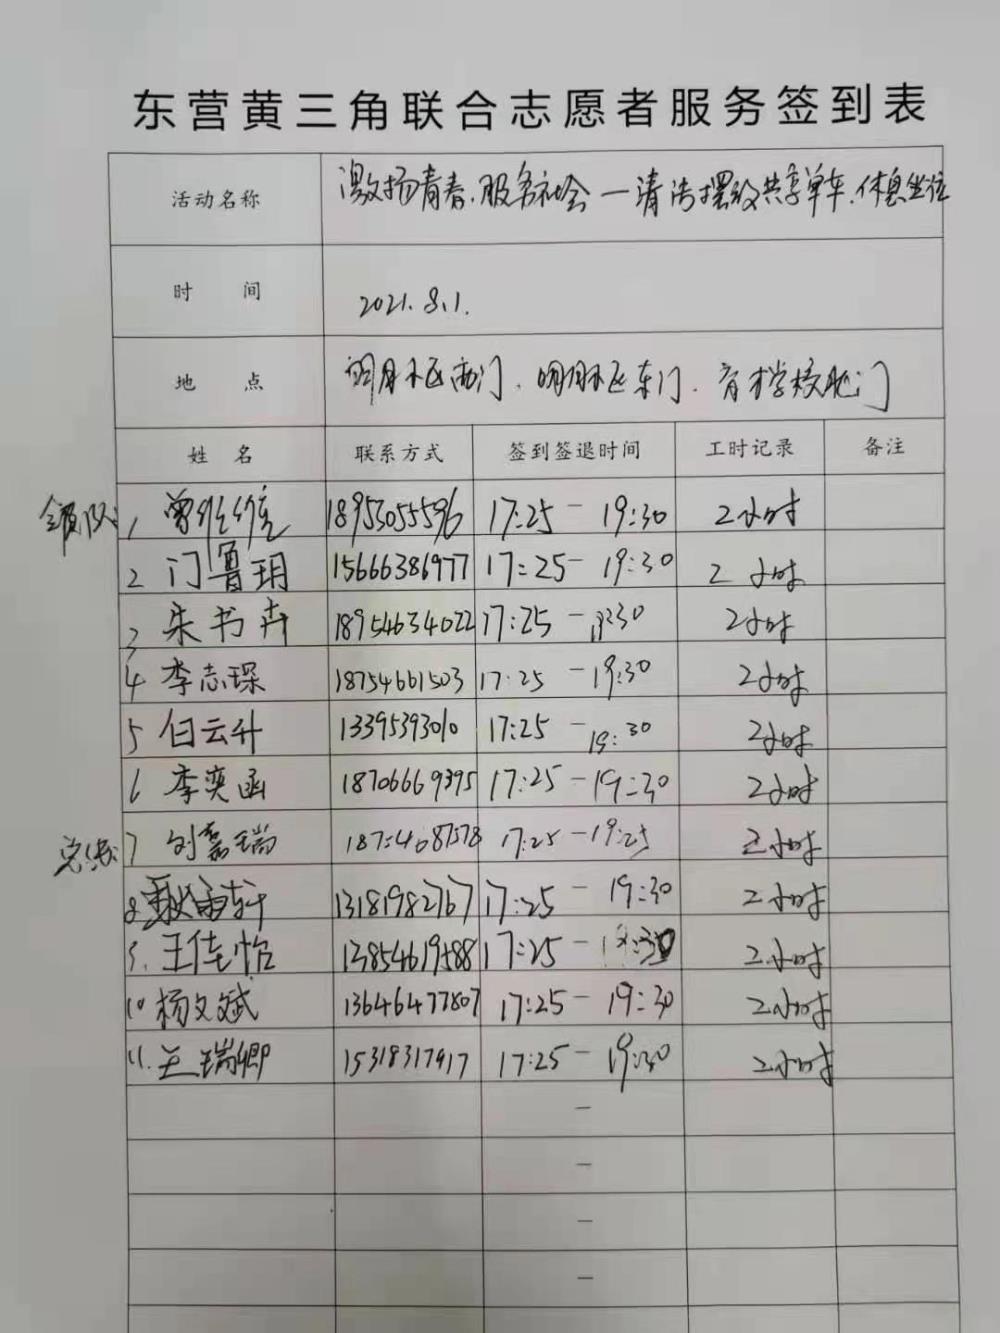 东营黄三角联合志愿者服务签到表
活动名称 激扬青春.服务社会 — 清洁摆放共享单车.休息坐位
时 间 2021.8.1.
地 点 明月小区西门.明月小区东门.育才学校北门
姓 名 联系方式 签到签退时间 工时记录 备注
领队: 1 18953055596 17:25 - 19:30 2小时
2 门鲁玥 15666386977 17:25 - 19:30 2 小时
3 朱书卉 18954634022 17:25 - 19:30 2小时
4 李志琛 18754661503 17:25 - 19:30 2小时
5 白云升 13395393010 17:25 - 19:30 2小时
6 李奕函 18706669395 17:25 - 19:30 2小时
7 刘嘉瑞 18754087578 17:25 - 19:25 2小时
8 13181982767 17:25 - 19:30 2小时
9. 王佳怡 13854619588 17:25 - 19:30 2小时
10 杨文斌 13646477807 17:25 - 19:30 2小时
11. 兰瑞卿 15318317917 17:25 - 19:30 2小时
-
-
-
-